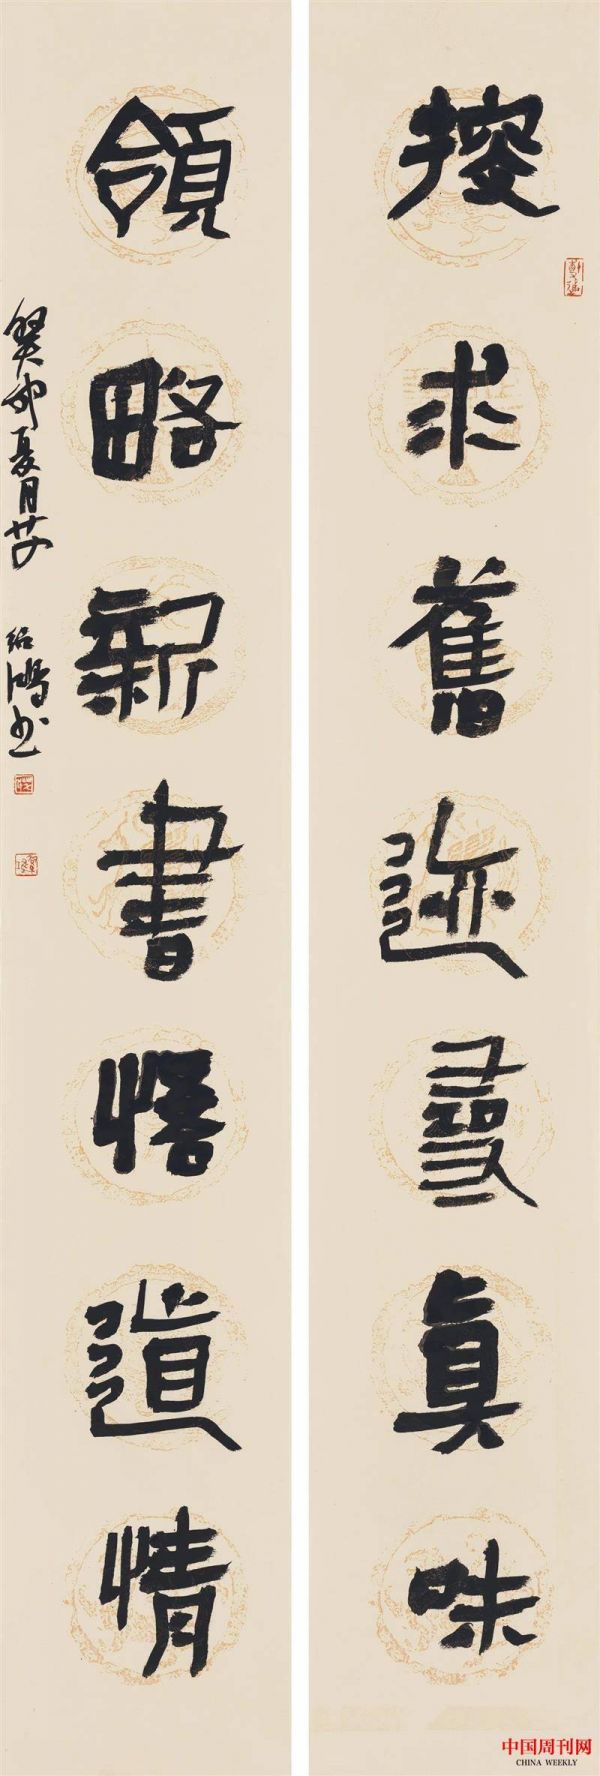 探求舊迹尋真味
領略新書悟道情
癸卯夏月
绍鴻书
中国周刊网
CHINA WEEKLY